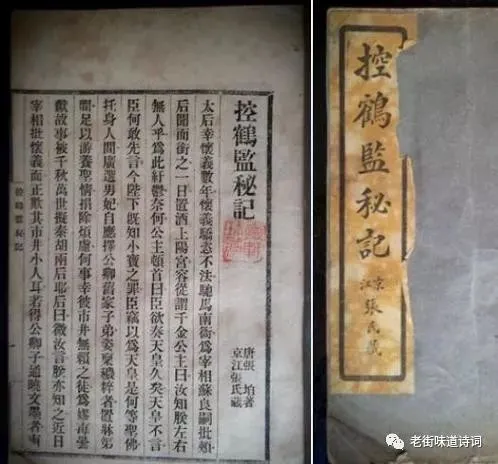 控鶴監秘記
唐張垍著
京江張氏藏
太后幸懷義數年懷義驕恣不法馳馬南衙爲宰相蘇良嗣批頰
后聞而銜之一日置酒上陽宮容從謂千金公主曰汝知朕左右
無人乎爲此紆鬱奈何公主頓首曰臣欲奏天皇久矣天皇不言
臣何敢先言今陛下既知小寶之罪臣竊以爲天皇是何等聖佛
托身人間廣選男妃自應擇公卿舊家子弟姿稟磯粹者置牀第
間足以游養聖情捐除煩慮何事幸彼市井無賴之徒爲嫪毐曇
獻故事被千秋萬世擬秦胡兩后耶后曰微汝言朕亦知之近日
宰相批懷義面正欺其市井小人耳若得公卿子通曉文墨者南
控鶴監秘記
控鶴監秘記
京江張氏藏
老街味道诗词